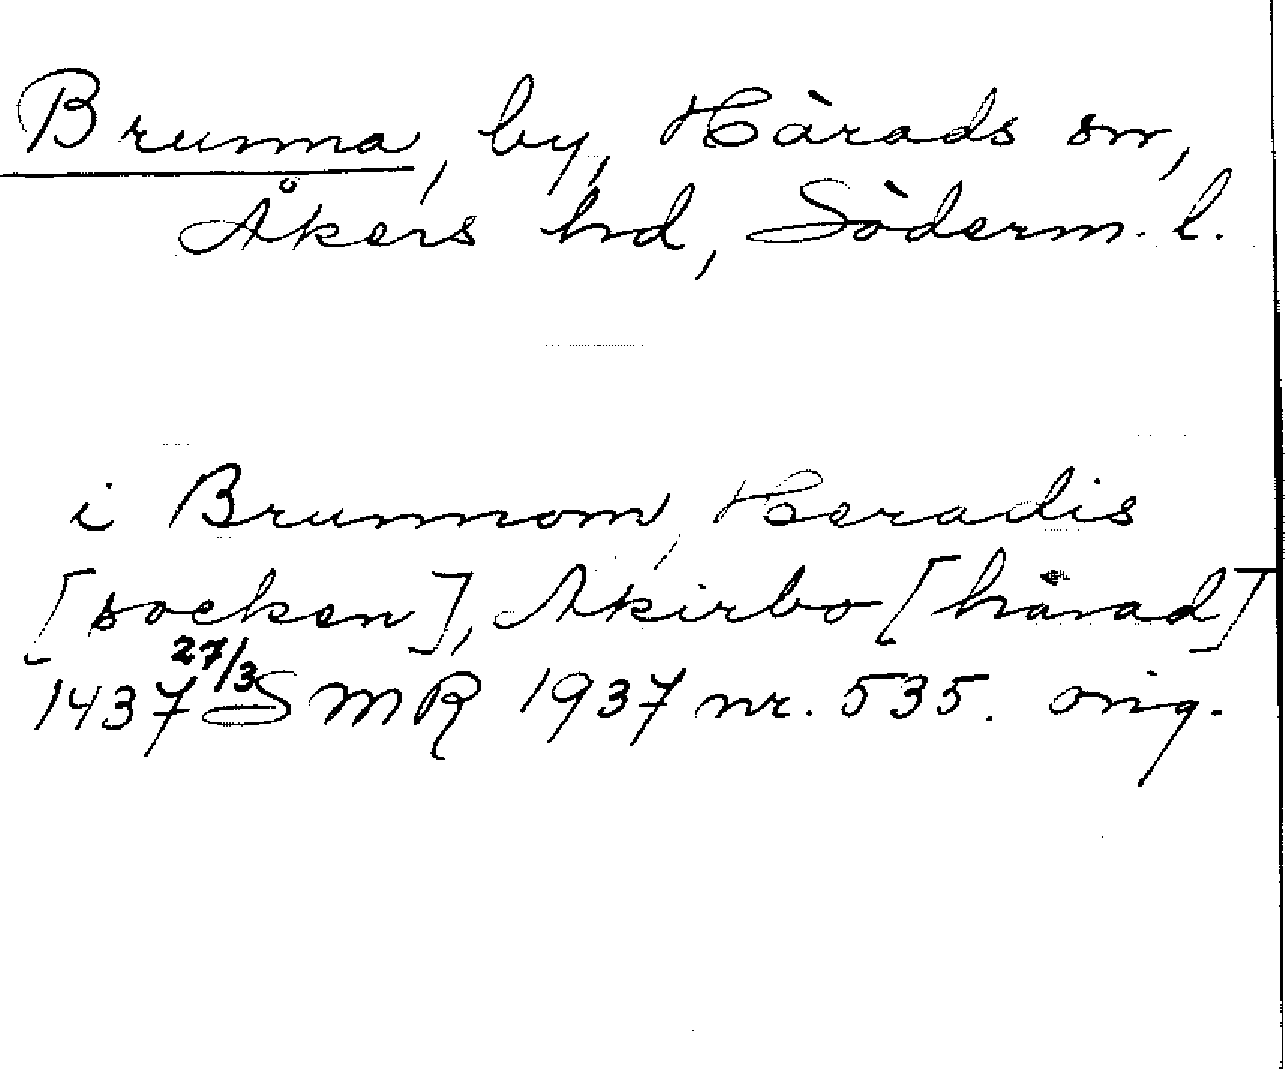 Brunna, by, Härads sn,
Åkers hd, Söderm. l.
i Brunnom, Heradis
[socken], Akirbo [härad]
1437 27/3 SMR 1937 nr. 535. orig.